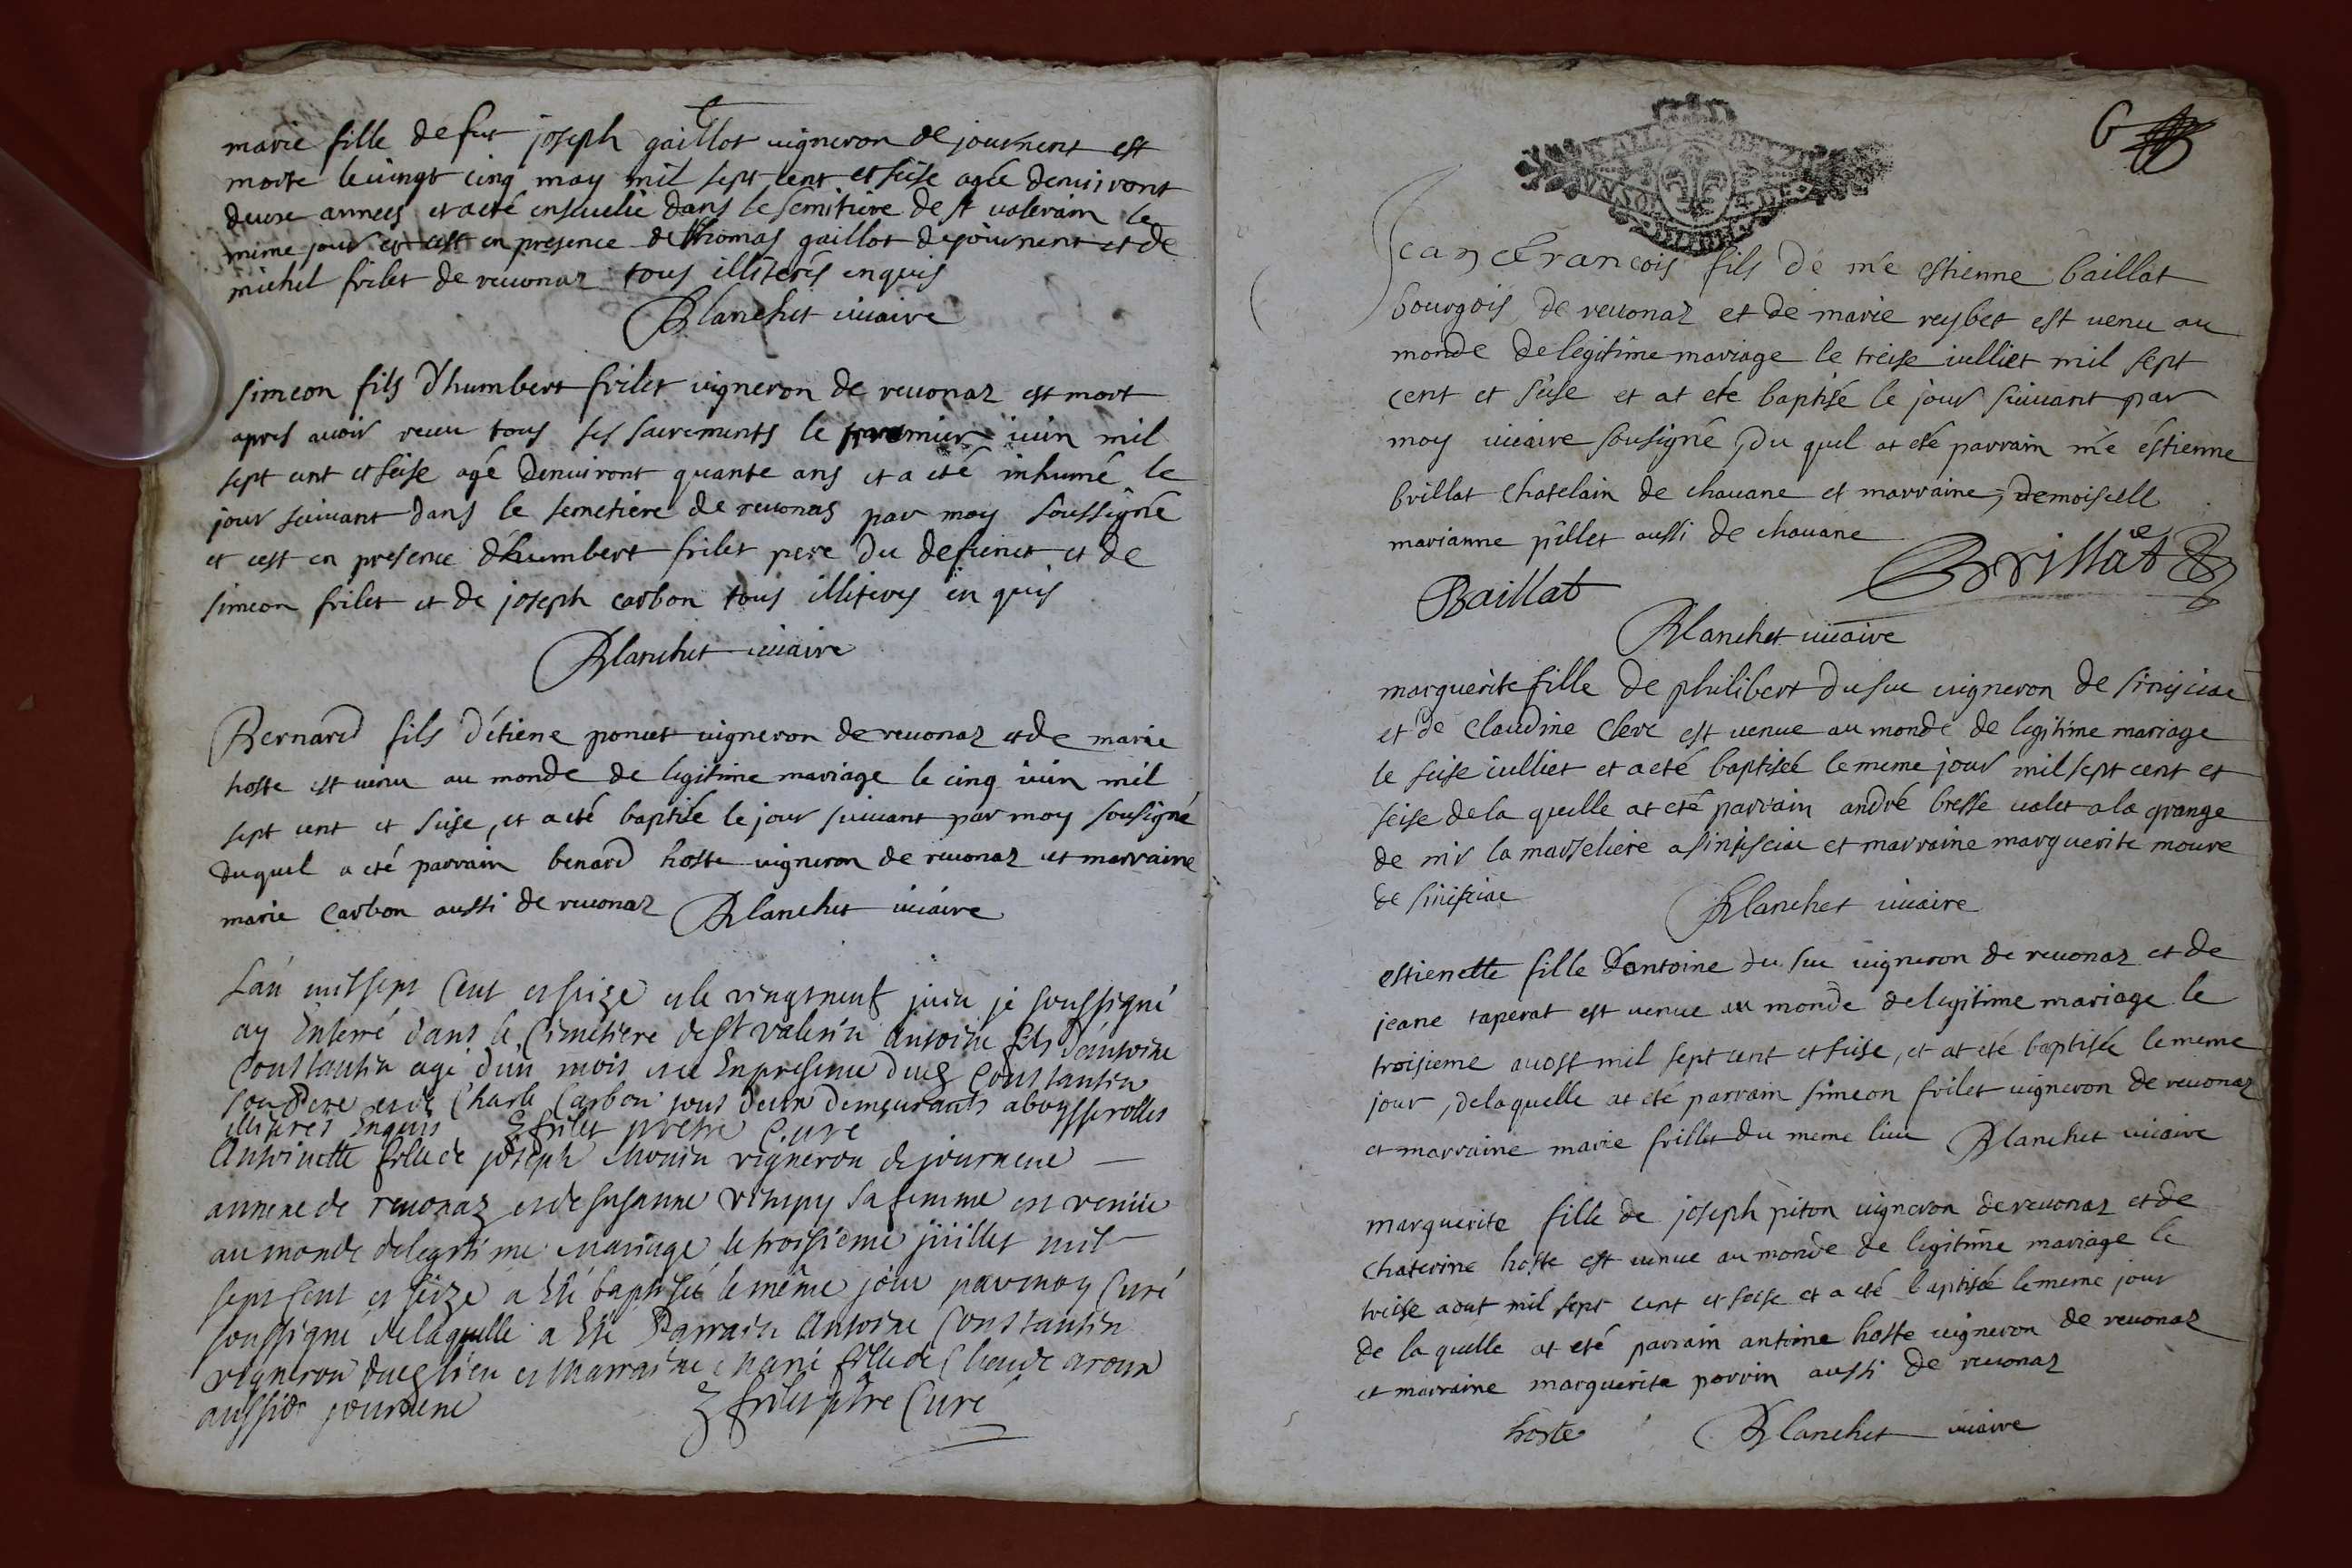 marie fille de fut joseph gaillot vigneron de journent est
morte le vingt cinq may mil sept cent et seise agée denuiront
deuse annees et a eté enseuelie dans le semitiere de st valerain le
mime jour et cest en presence de thomas gaillot de journent et de
michel frilet de reuonaz tous illiterés enquis
Blanchet vicaire
simeon fils d'humbert frilet vigneron de reuonaz est mort
apres auoir receu tous ses sacrements le premier iuin mil
sept cent et seise agé denuiront quante ans et a eté inhumé le
jour suiuant dans le semetiere de reuonas par moy soussigné
et cest en presence d'humbert frilet pere du defunct et de
simeon frilet et de joseph carbon tous illiteres en quis
Blanchet vicaire
Bernard fils d'étiene poncet vigneron de reuonaz et de marie
hoste est venu au monde de legitime mariage le cinq iuin mil
sept cent et seise, et a eté baptisé le jour suiuant par moy sousigné
duquel a eté parrain benard hoste vigneron de reuonaz et marraine
marie Carbon aussi de reuonaz Blanchet vicaire
L'an mil sept Cent et seize et le vingtneuf juin je soussigné
ay Enterré dans le Cimetiere de St valerin Antoine fils d'antoine
Constantin agé d'un mois En presence dud Constantin
son Pere et de Charle Carbon tous deux demeurants a boysserolles
illiteres Enquis frilet pretre Curé
Antoinette fille de joseph Mouin vigneron de journene
annexe de reuonaz et de susanne sa femme est venüe
au monde de legitime mariage le troisieme jüillet mil
sept Cent et seize a Eté baptisée le même jour par moy Curé
soussigné de laquelle a Eté Parrain Antoine Constantin
vigneron dud lieu et Marraine Marie fille de Claude
aussi de journene frilet ptre Curé
6
Jean francois fils de me estienne baillat
bourgois de reuonaz et de marie reybet est venu au
monde de legitime mariage le treise iulliet mil sept
cent et seise et at eté baptisé le jour suiuant par
moy vicaire sousigné, du quel at eté parrain me éstienne
brillat chatelain de chauane et marraine, demoiselle
marianne pillet aussi de chauane
Brillat
Baillat
Blanchet vicaire
marguerite fille de philibert du suc vigneron de
et de Claudine Clerc est venue au monde de legitime mariage
le seise iulliet et a eté baptisée le meme jour mil sept cent et
seise de la quelle at eté parrain andré bresse valet a la grange
de mr la marseliere a et marraine marguerite moure
de
Blanchet vicaire
estienette fille d'antoine du suc vigneron de reuonaz et de
jeane taperat est venue au monde de legitime mariage le
troisieme auost mil sept cent et seise, et at eté baptisée le meme
jour, de laquelle at eté parrain simeon frilet vigneron de reuonaz
et marraine marie frillet du meme lieu Blanchet vicaire
marguerite fille de joseph piton vigneron de reuonaz et de
Chaterine hoste est venue au monde de legitime mariage le
treise aout mil sept cent et seise et a eté baptisée le meme jour
de la quelle at eté parrain antoine hoste vigneron de reuonaz
et marraine marguerite perrin aussi de reuonaz
hoste Blanchet vicaire